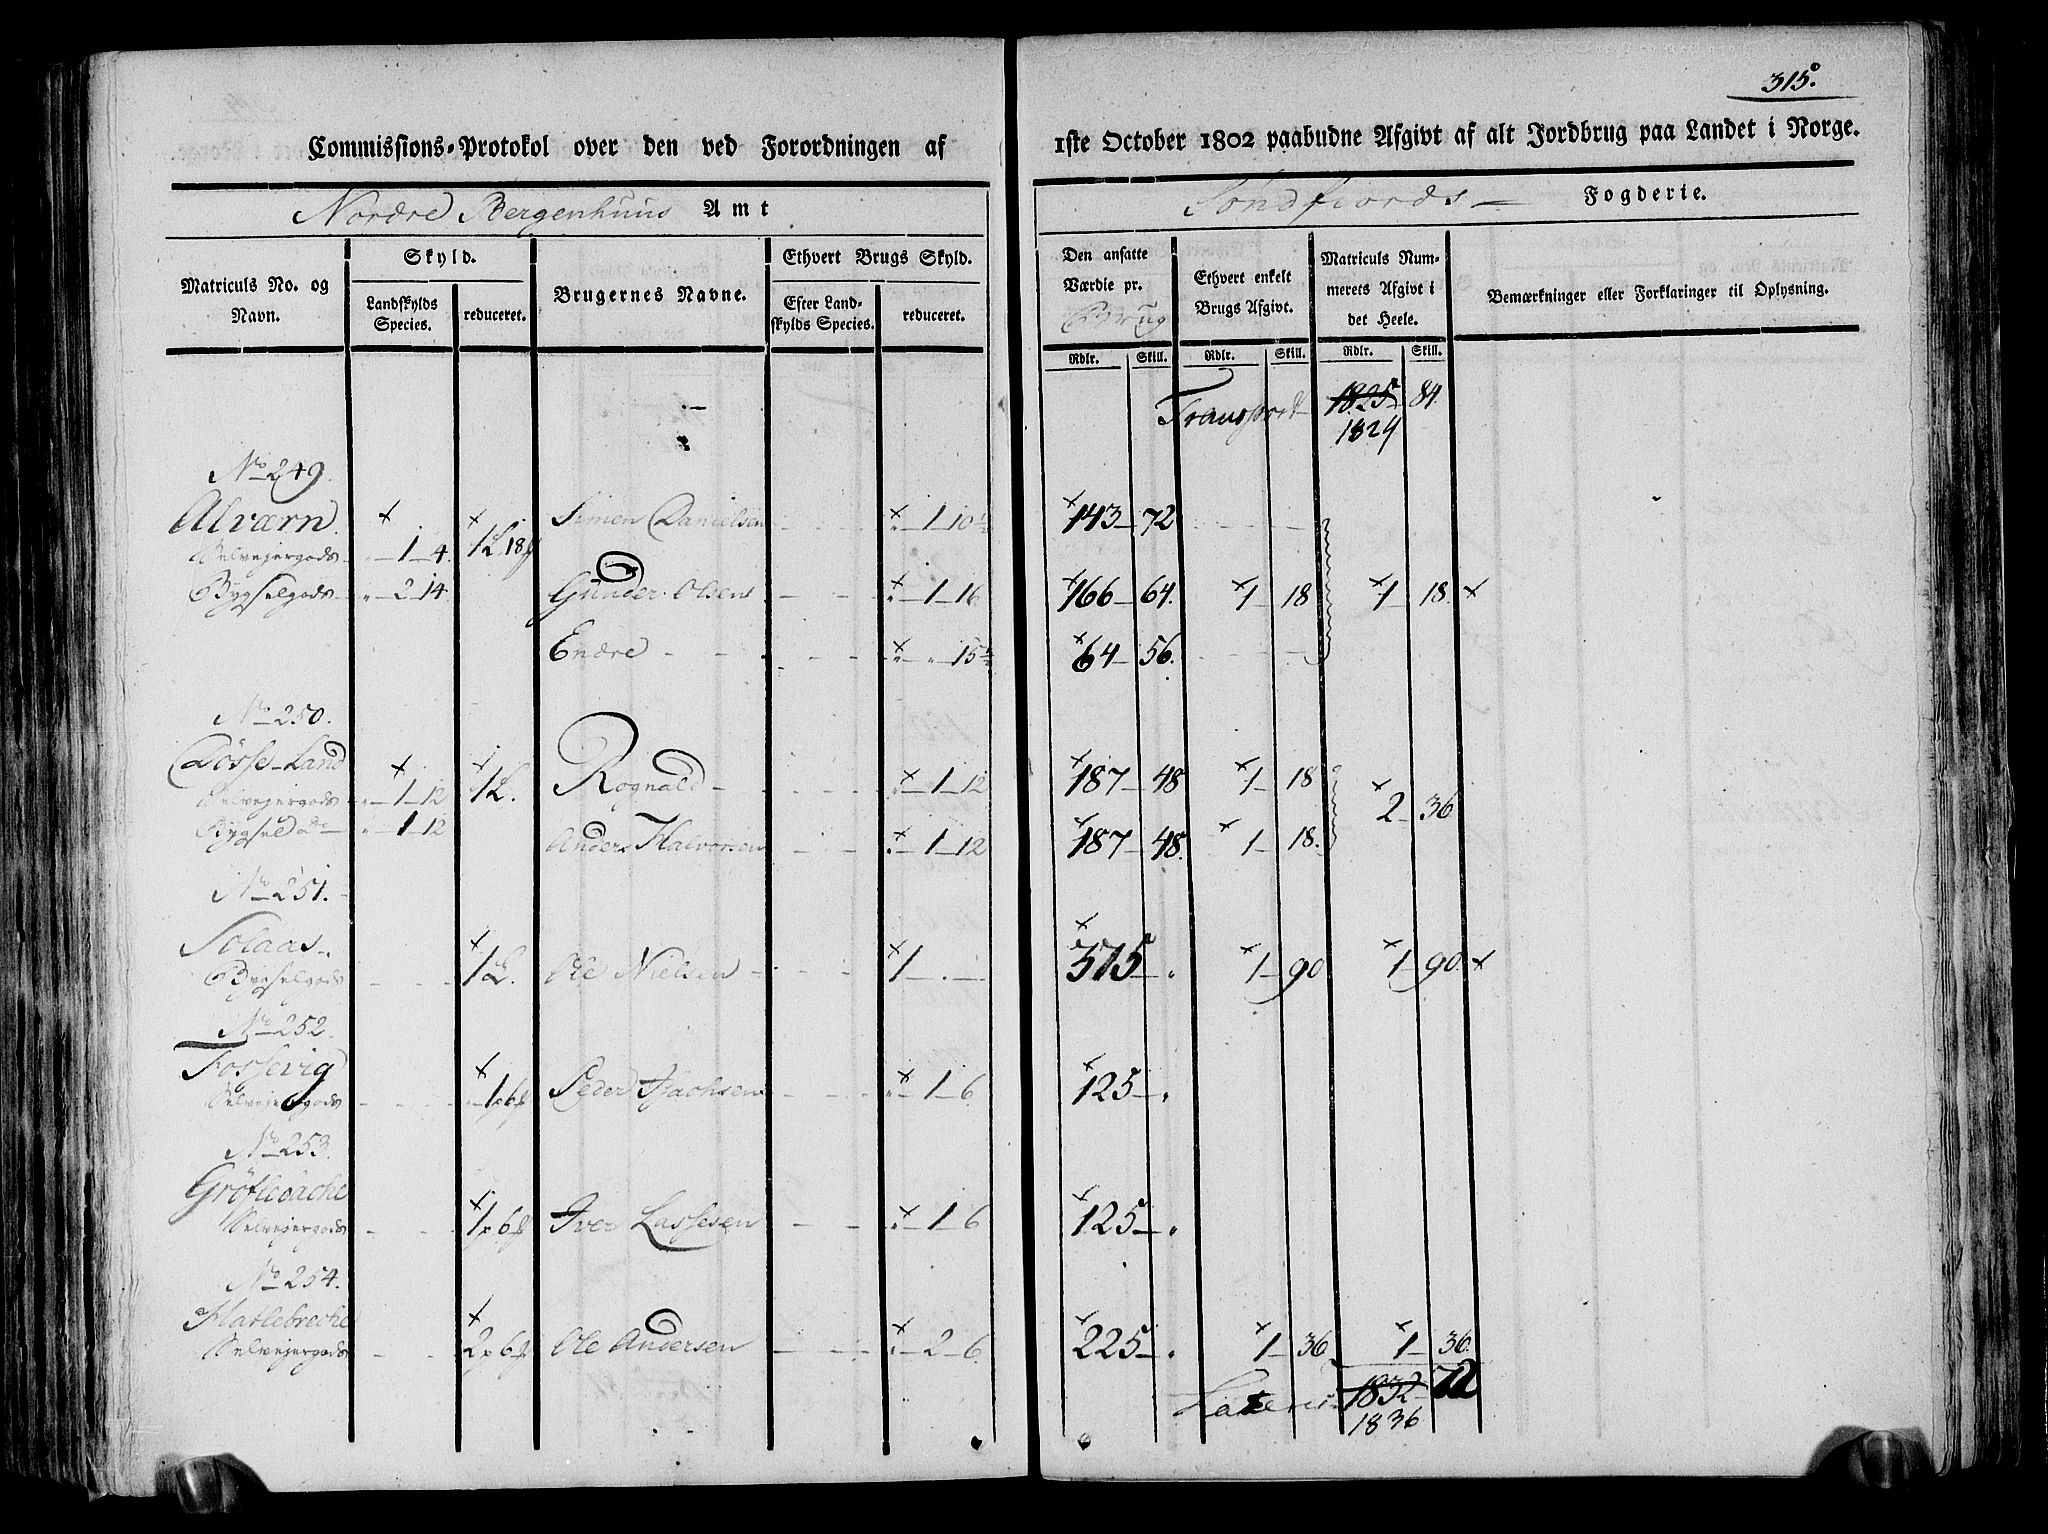 315.
Commissions-Protokol over den ved Forordningen af 1ste October 1802 paabudne Afgivt af alt Jordbrug paa Landet i Norge.
Nordre Bergenhuus Amt
Søndfiords Fogderie.
Matriculs No. og Navn.
Skyld.
Landskylds Species.
reduceret.
Brugernes Navne.
Ethvert Brugs Skyld.
Efter Landskylds Species.
reduceret.
Den ansatte Værdie pr. Brug
Ethvert enkelt Brugs Afgivt.
Matriculs Nummerets Afgivt i det Heele.
Bemærkninger eller Forklaringer til Oplysning.
Rdlr. Skill. Rdlr. Skill. Rdlr. Skill.
Transport 1825 84
1824
No 249.
Alværn Simen Danielsen 1 10½ 143 72
Selvejergods 1 4 1 L 18
Bygselgods 2 14 Gunder Olsen 1 16 166 64 1 18 1 18
Endre 15½ 64 56
No 250.
Døsse-Land Rognald 1 12 187 48 1 18
Selvejergods 1 12 1 L. 2 36
Bygsel do 1 12 Anders Halvorsen 1 12 187 48 1 18
No 251.
Solaas
Bygselgods 1 L. Ole Nielsen 1 375 1 90 1 90
No 252.
Fossevig
Selvejergods 1 p 6 Peder Isachsen 1 6 125
No 253.
Grøtlebache
Selvejergods 1 p 6 Iver Lassesen 1 6 125
No 254.
Hatlebreche
Selvejergods 2 p 6 Ole Andersen 2 6 225 1 36 1 36
Lateris 1832 72
1836